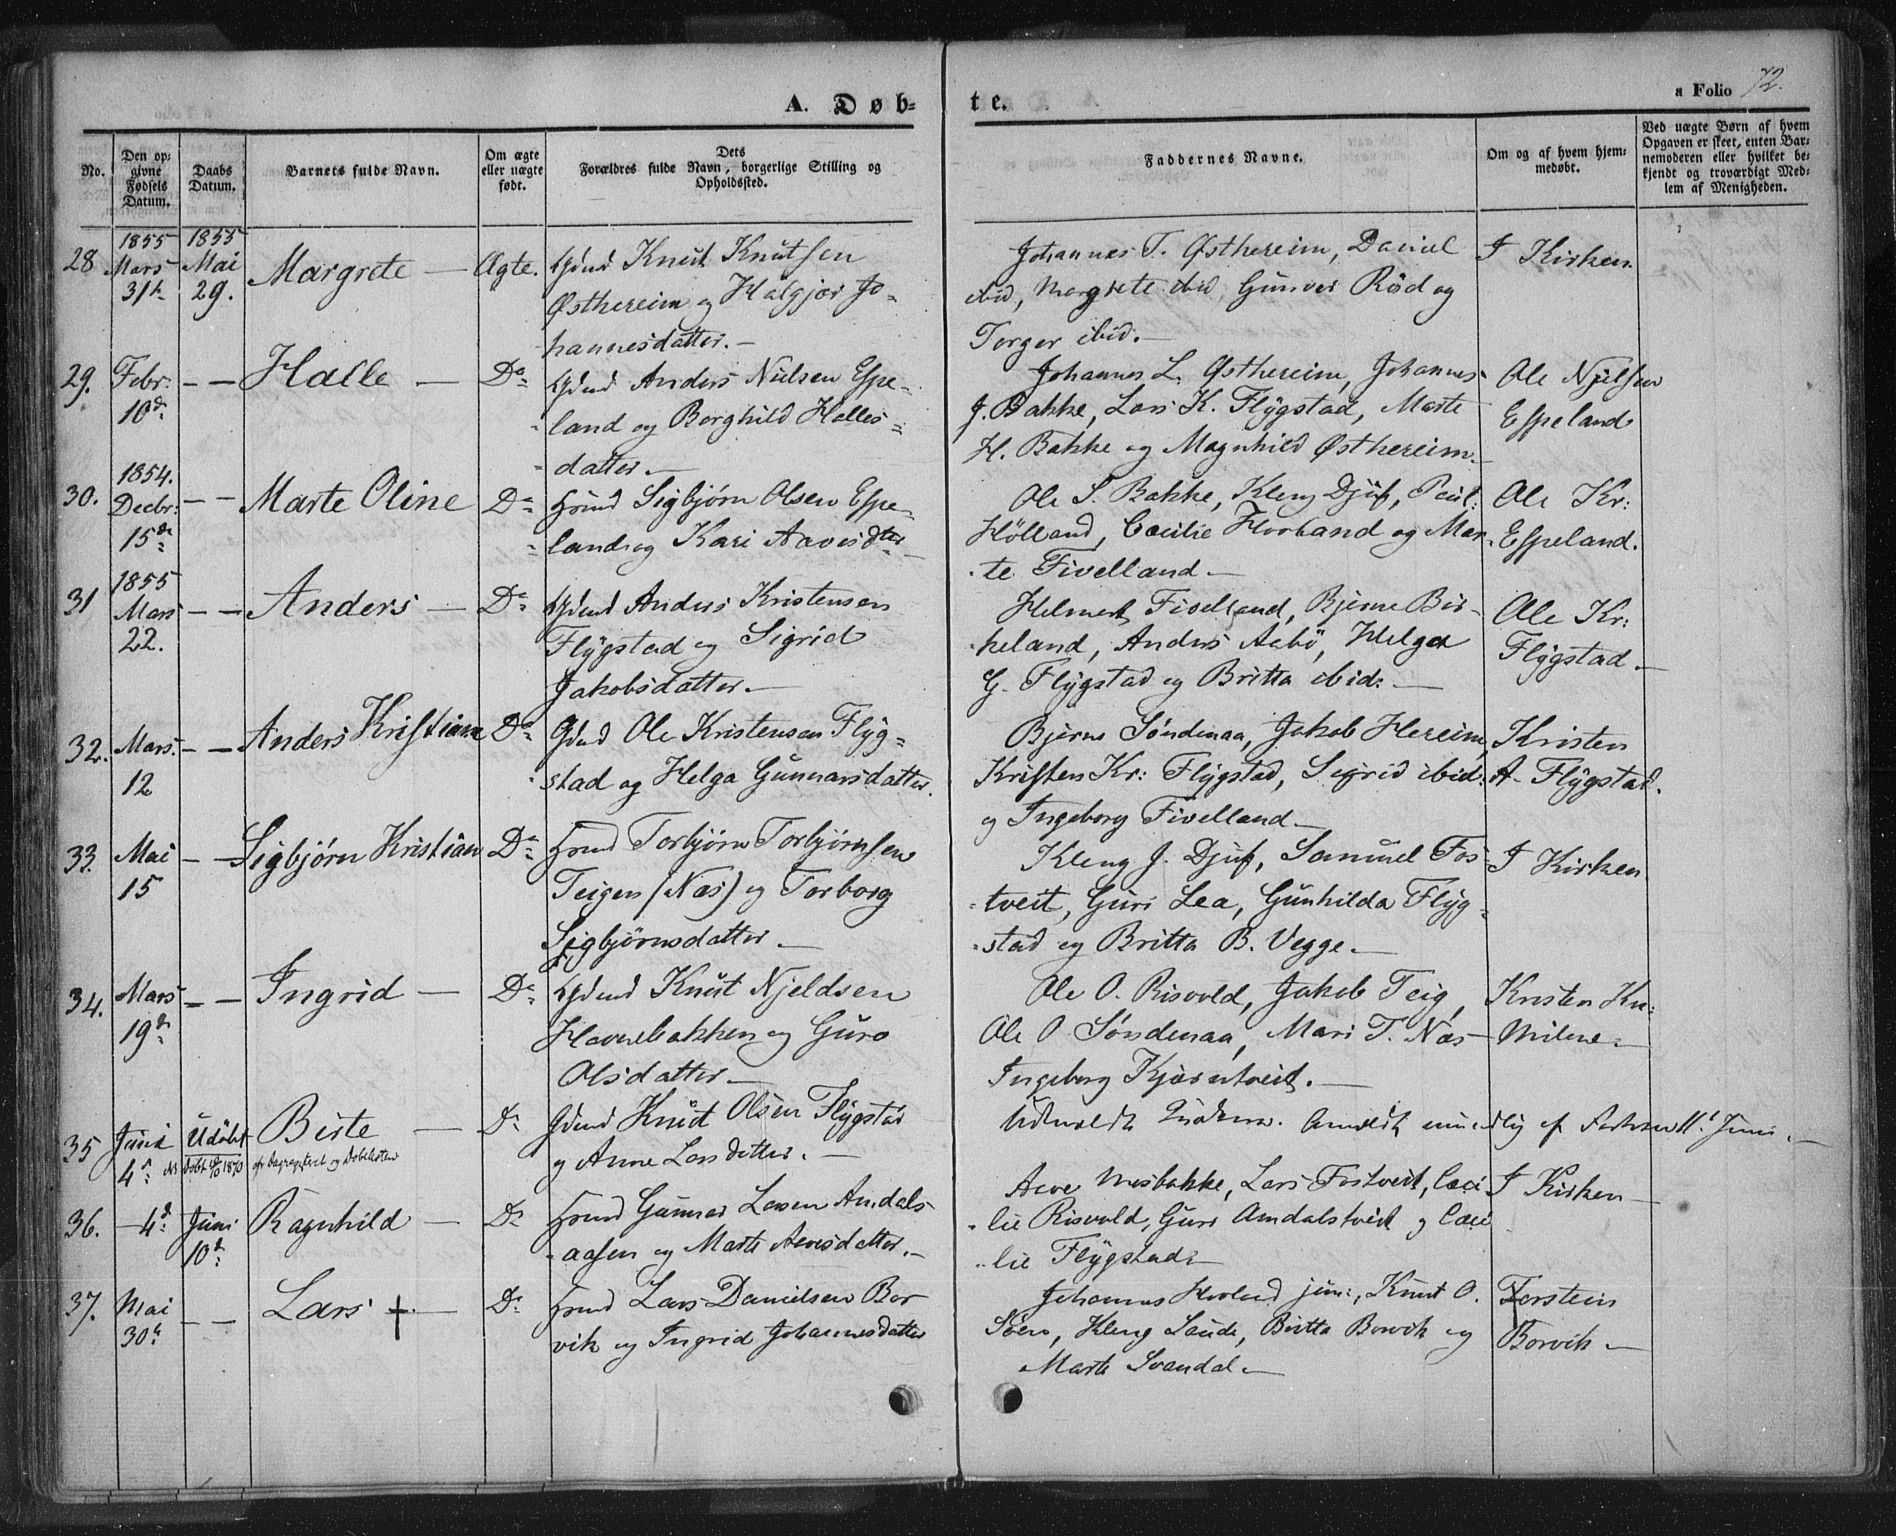 A. Døb-
te.
a Folio 72.
No.
Den op-
givne
Fødsels
Datum.
Daabs
Datum.
Barnets fulde Navn.
Om ægte
eller uægte
født.
Dets
Forældres fulde Navn, borgerlige Stilling og
Opholdssted.
Faddernes Navne.
Om og af hvem hjem-
medøbt.
Ved uægte Børn af hvem
Opgaven er skeet, enten Bar-
nemoderen eller hvilket be-
kjendt og troværdigt Med-
lem af Menigheden.
28
1855
Mars
31te
1855
Mai
29.
Margrete
Ægte.
Gdmd Knut Knutsen
Østhereim og Halgjer Jo-
hannesdatter.
Johannes T. Østhereim, Daniel
ibid, Margrete ibid Gunver Rød og
Torger ibid.
I Kirken
29.
Febr:
10de
Halle
Do
Gdmd Anders Nielsen Espe-
land og Borghild Halles-
datter
Johannes L. Østhereim, Johannes
J. Bakke, Lars K. Flÿgstad, Marte
H. Bakke og Magnhild Østhereim
Ole Njelsen
Espeland
30.
1854.
Decbr:
15de
Marte Oline
Do
Hmd Sigbjørn Olsen Espe-
land og Kari Aavesdter
Ole S. Bakke, Kleng Djuf, Paul
Hölland, Cecilie Hovland og Mar-
te Fivelland
Ole Kr:
Espeland.
31
1855
Mars
22.
Anders
Do
Gdmd Anders Kristensen
Flÿgstad og Sigrid
Jakobsdatter.
Helmert Fivelland, Bjerne Bir-
keland, Anders Aabö, Helga
G. Flÿgstad og Britta ibid:
Ole Kr:
Flÿgstad
32.
Mars.
12
Anders Kristian
Do
Gdmd Ole Kristensen Flÿg-
stad og Helga Gunnarsdatter.
Bjerne Søndenaa, Jakob Hereim,
Kristen Kr: Flÿgstad, Sigrid ibid:
og Ingeborg Fivelland
Kristen
A. Flÿgstad.
33.
Mai
15
Sigbjørn Kristian
Do
Hmd Torbjørn Torbjørnsen
Teigen (Næs) og Torborg
Sigbjörnsdatter
Kleng J. Djuf, Samuel Fos-
tveit, Guri Lea, Gunhilda Flÿg-
stad og Britta B. Vegge
I Kirken
34.
Mars
19de
Ingrid
Do
Gdmd Knut Njeldsen
Havrebakken og Guro
Olsdatter
Ole O. Risvold, Jakob Teig,
Ole O Søndenaa, Mari T. Næs
Ingeborg Kjørntveit.
Kristen Kn:
Milne
35
Juni
4de
Udöbt
Birte
Do
Gdmd Knut Olsen Flÿgstad
og Anne Larsdatter.
36.
4de
Juni
10de
Ragnhild
Do
Hmd Gunnar Larsen Amdals-
aasen og Marte Aavesdatter.
Aave Mosbakke, Lars Fostveit, Ceci
lie Risvold, Guri Amdalstveit og Ceci
lie Flÿgstad
I Kirken
37.
Mai
30te
Lars †
Do
Hmd Lars Danielsen Bor
vik og Ingrid Johannesdatter
Johannes Hovland jun:, Knut O.
Soen, Kleng Saude, Britta Borvik og
Marte Svandal
Torstein
Borvik